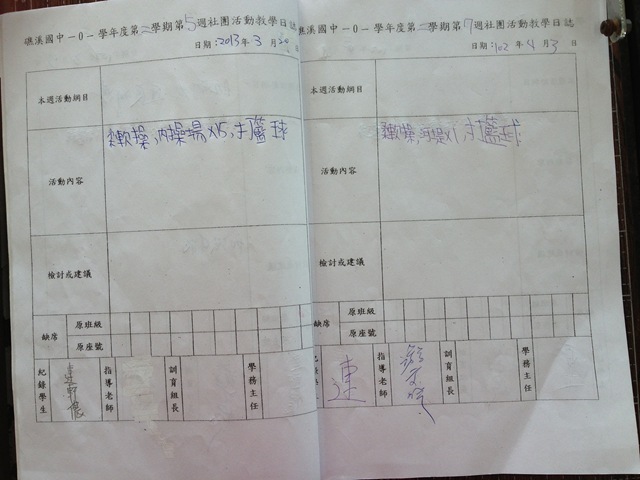 礁溪國中一0一學年度第二學期第5週社團活動教學日誌
日期:2013年3月20
本週活動綱目
活動內容
軟操,內操場X15,打籃球
檢討或建議
缺席
原班級
原座號
紀錄學生
連
指導老師
訓育組長
學務主任
礁溪國中一0一學年度第二學期第7週社團活動教學日誌
日期:102年4月3日
本週活動綱目
活動內容
軟操,打籃球
檢討或建議
缺席
原班級
原座號
連
指導老師
訓育組長
學務主任